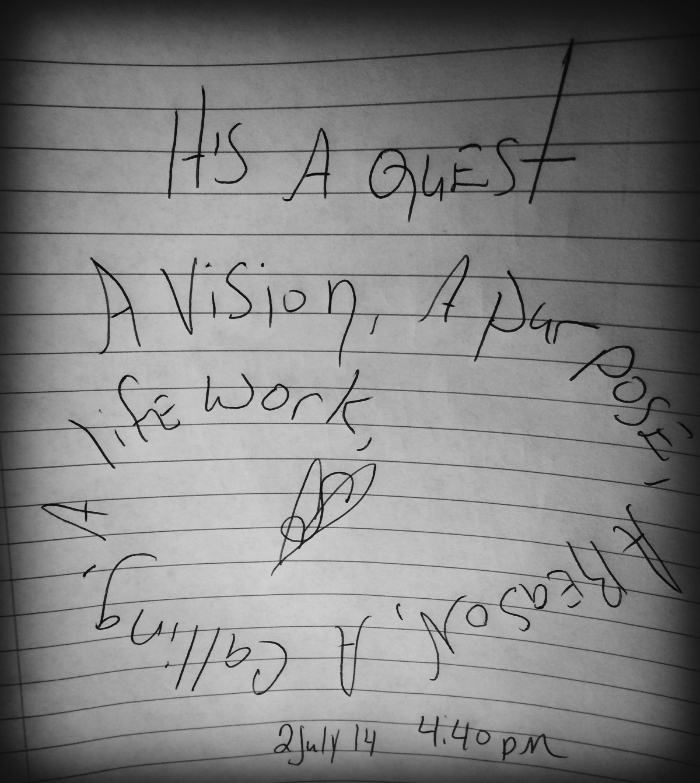 It'S A QuEST
A ViSion, A purPOSE,
A REaSoN, A Calling,
A lifE Work,
2 July 14 4:40 pm